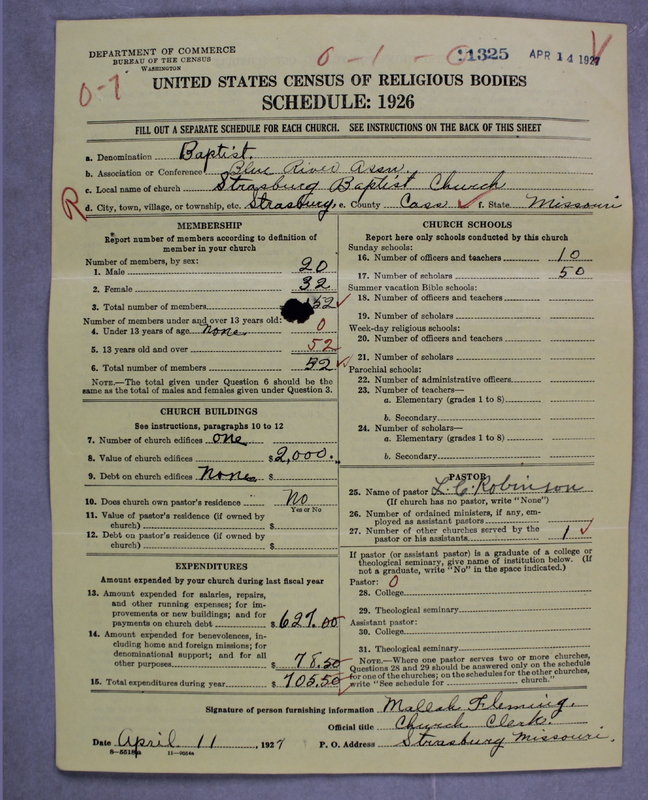 DEPARTMENT OF COMMERCE
BUREAU OF THE CENSUS
WASHINGTON
0-1-0
11325
APR 14 1927
0-7
UNITED STATES CENSUS OF RELIGIOUS BODIES
SCHEDULE: 1926
FILL OUT A SEPARATE SCHEDULE FOR EACH CHURCH. SEE INSTRUCTIONS ON THE BACK OF THIS SHEET
a. Denomination Baptist.
b. Association or Conference Blue River Assn.
c. Local name of church Strasburg Baptist Church
R
d. City, town, village, or township, etc. Strasburg, e. County Cass f. State Missouri
MEMBERSHIP
Report number of members according to definition of
member in your church
Number of members, by sex:
1. Male 20
2. Female 32
3. Total number of members 52
Number of members under and over 13 years old:
4. Under 13 years of age none 0
5. 13 years old and over 52
6. Total number of members 52
NOTE.—The total given under Question 6 should be the
same as the total of males and females given under Question 3.
CHURCH BUILDINGS
See instructions, paragraphs 10 to 12
7. Number of church edifices one
8. Value of church edifices $2,000.
9. Debt on church edifices None
10. Does church own pastor's residence No
Yes or No
11. Value of pastor's residence (if owned by
church) $
12. Debt on pastor's residence (if owned by
church) $
EXPENDITURES
Amount expended by your church during last fiscal year
13. Amount expended for salaries, repairs,
and other running expenses; for im-
provements or new buildings; and for
payments on church debt $627.00
14. Amount expended for benevolences, in-
cluding home and foreign missions; for
denominational support; and for all
other purposes $78.50
15. Total expenditures during year $705.50
CHURCH SCHOOLS
Report here only schools conducted by this church
Sunday schools:
16. Number of officers and teachers 10
17. Number of scholars 50
Summer vacation Bible schools:
18. Number of officers and teachers
19. Number of scholars
Week-day religious schools:
20. Number of officers and teachers
21. Number of scholars
Parochial schools:
22. Number of administrative officers
23. Number of teachers—
a. Elementary (grades 1 to 8)
b. Secondary
24. Number of scholars—
a. Elementary (grades 1 to 8)
b. Secondary
PASTOR
25. Name of pastor L. C. Robinson
(If church has no pastor, write "None")
26. Number of ordained ministers, if any, em-
ployed as assistant pastors
27. Number of other churches served by the
pastor or his assistants 1
If pastor (or assistant pastor) is a graduate of a college or
theological seminary, give name of institution below. (If
not a graduate, write "No" in the space indicated.)
Pastor: 0
28. College
29. Theological seminary
Assistant pastor:
30. College
31. Theological seminary
NOTE.—Where one pastor serves two or more churches,
Questions 28 and 29 should be answered only on the schedule
for one of the churches; on the schedules for the other churches,
write "See schedule for church."
Signature of person furnishing information Mallah Fleming.
Official title Church Clerk.
Date April 11, 1927 P. O. Address Strasburg Missouri.